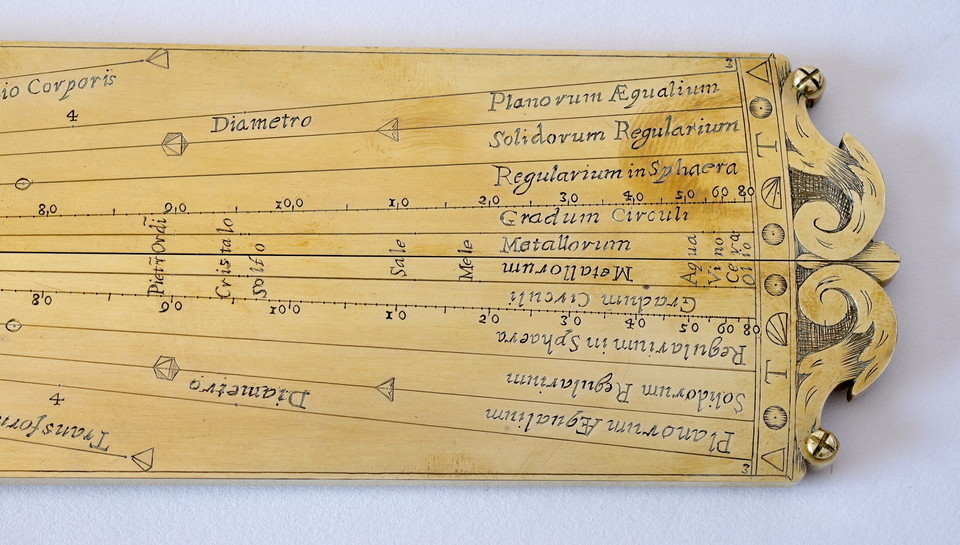 io Corporis
4
Diametro
3
Planorum Ægualium
Solidorum Regularium
Regularium in Sphaera
8,0 9,0 10,0 1,0 2,0 3,0 4,0 5,0 60 80
Gradum Circuli
Metallorum
Pietr̃ Ordĩ
Cristalo
Solfo
Sale
Mele
Agua
Vino
Cera
Olio
Metallorum
Gradum Circuli
8,0 9,0 10,0 1,0 2,0 3,0 4,0 50 60 80
Regularium in Sphaera
Solidorum Regularium
Diametro
Planorum Ægualium
4
Transfor
3
T
T